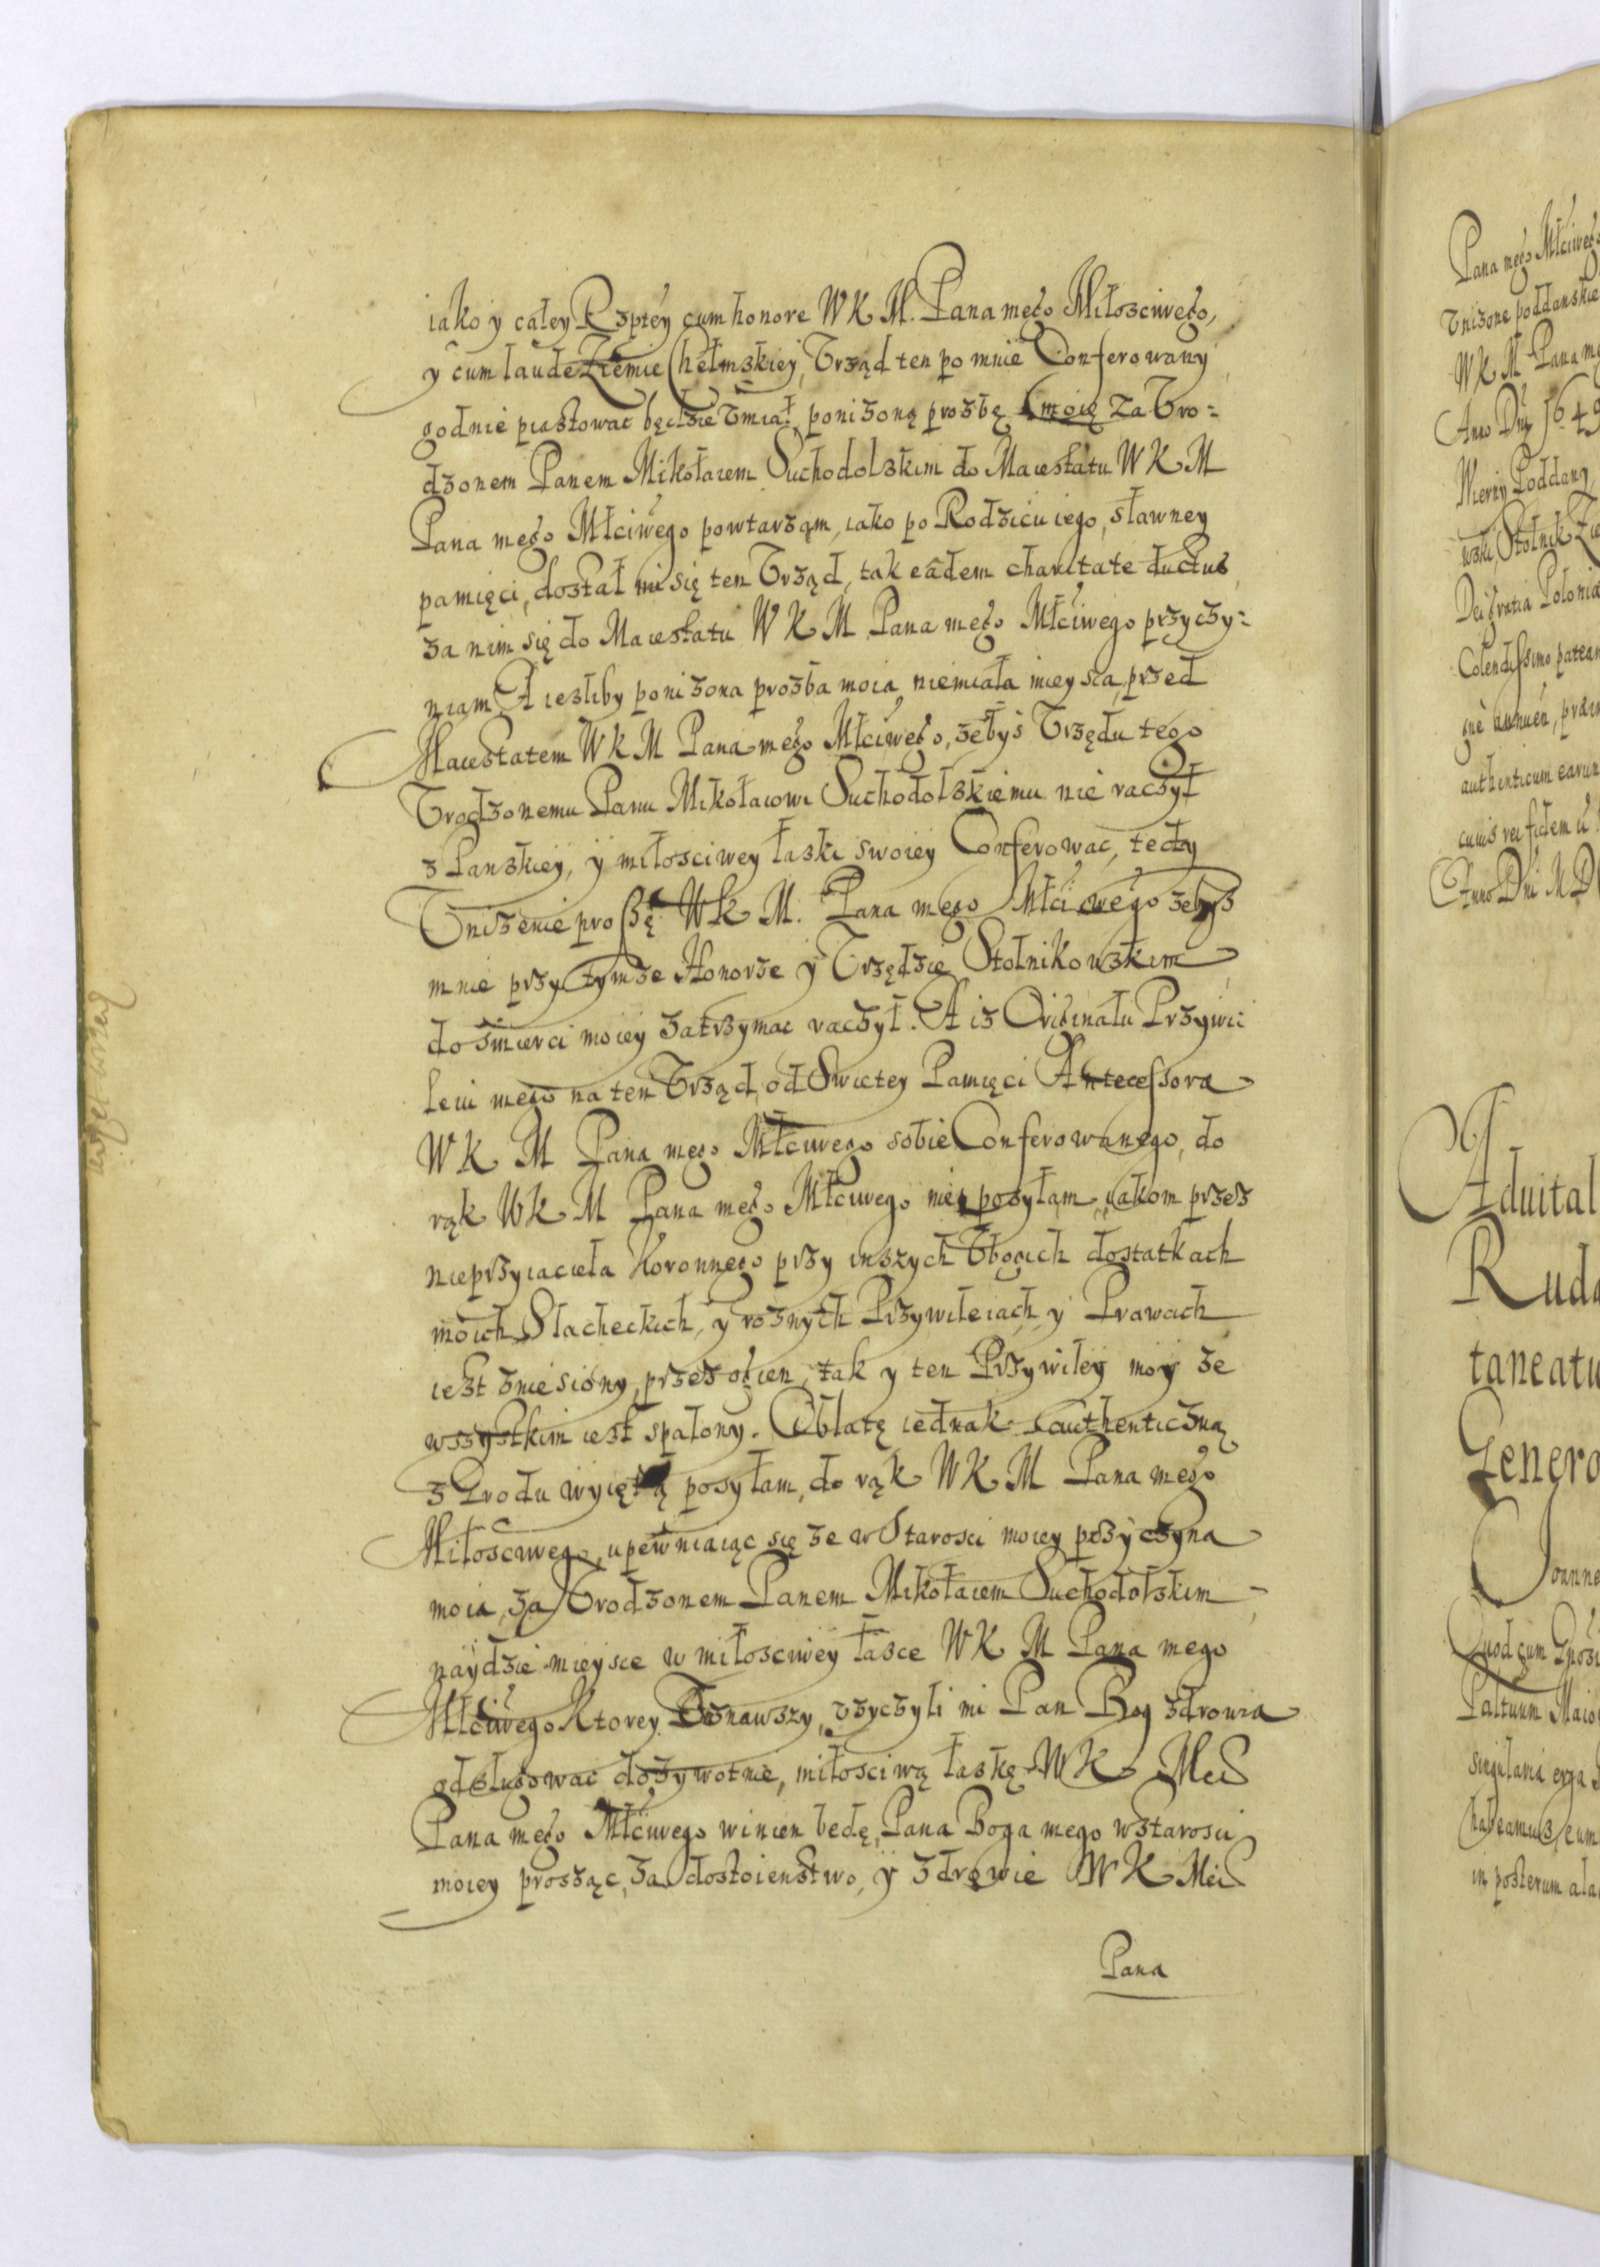 iako y całey Rzpłey cum honore WKM. Pana mego Miłosciwego,
y cum laude Ziemie Chełmskiey, Vrząd ten po mnie Conferowany
godnie piastowac będzie Vmiał, ponizoną prozbę moię za Vro=
dzonem Panem Mikołaiem Suchodolskim do Maiestatu WKM
Pana mego Młciwego powtarzam, iako po Rodzicu iego, sławney
pamięci, dostał mi się ten Vrząd, tak eâdem charitate ductus
za nim się do Maiestatu WKM Pana mego Młciwego przyczy=
niam, A iesliby ponizona prozba moia, niemiała mieysca, przed
Maiestatem WKM Pana mego Młciwego, zebys Vrzędu tego
Vrodzonemu Panu Mikołaiowi Suchodolskiemu nie raczył
z Panskiey, y miłosciwey łaski swoiey Conferowac, tedy
Vnizenie proszę WKM. Pana mego Młciwego zebys
mnie przy tymze Honorze y Vrzędzie Stolnikowskim
do smierci moiey zatrzymac raczył. A iz Originału Przywi:
leiu mego na ten Vrząd, od Swietey Pamięci Antecessora
WKM Pana mego Młciwego sobie Conferowanego, do
rąk WKM Pana mego Młciwego nie posyłam, iakom przez
nieprzyiaciela Koronnego przy inszych Vbogich dostatkach
moich Slacheckich, y roznych Przywileiach, y Prawach
iest zniesiony, przez ogien, tak y ten Przywiley moy ze
wszystkim iest spalony. Oblatę iednak authenticzną
z Grodu wyiętą posyłam, do rąk WKM Pana mego
Miłosciwego, upewniaiąc się ze w Starosci moiey przyczyna
moia, za Vrodzonem Panem Mikołaiem Suchodolskim
naydzie mieysce w miłosciwey łasce WKM Pana mego
Młciwego Ktorey Doznawszy, vzyczyli mi Pan Bog zdrowia
odsługowac dozywotnie, miłosciwą łaskę WK Mci
Pana mego Młciwego winien będę, Pana Boga mego w starosci
moiey prosząc, za dostoienstwo, y zdrowie WK Mci
Pana
Pana mego Młciwego
Vnizone poddanskie
WKM Pana me
Anno Dni 1649
Wierny Poddany
wski, Stolnik Zie
Dei gratia Polonia
Colendissimo patean
authenticum earun
cuius rei fidem
Anno Dni MD
Aduital
Ruda
taneatu
Genero
Joanne
Quod cum
Palatinum Maio
singularia erga
habeamus, eum
in posterum ala